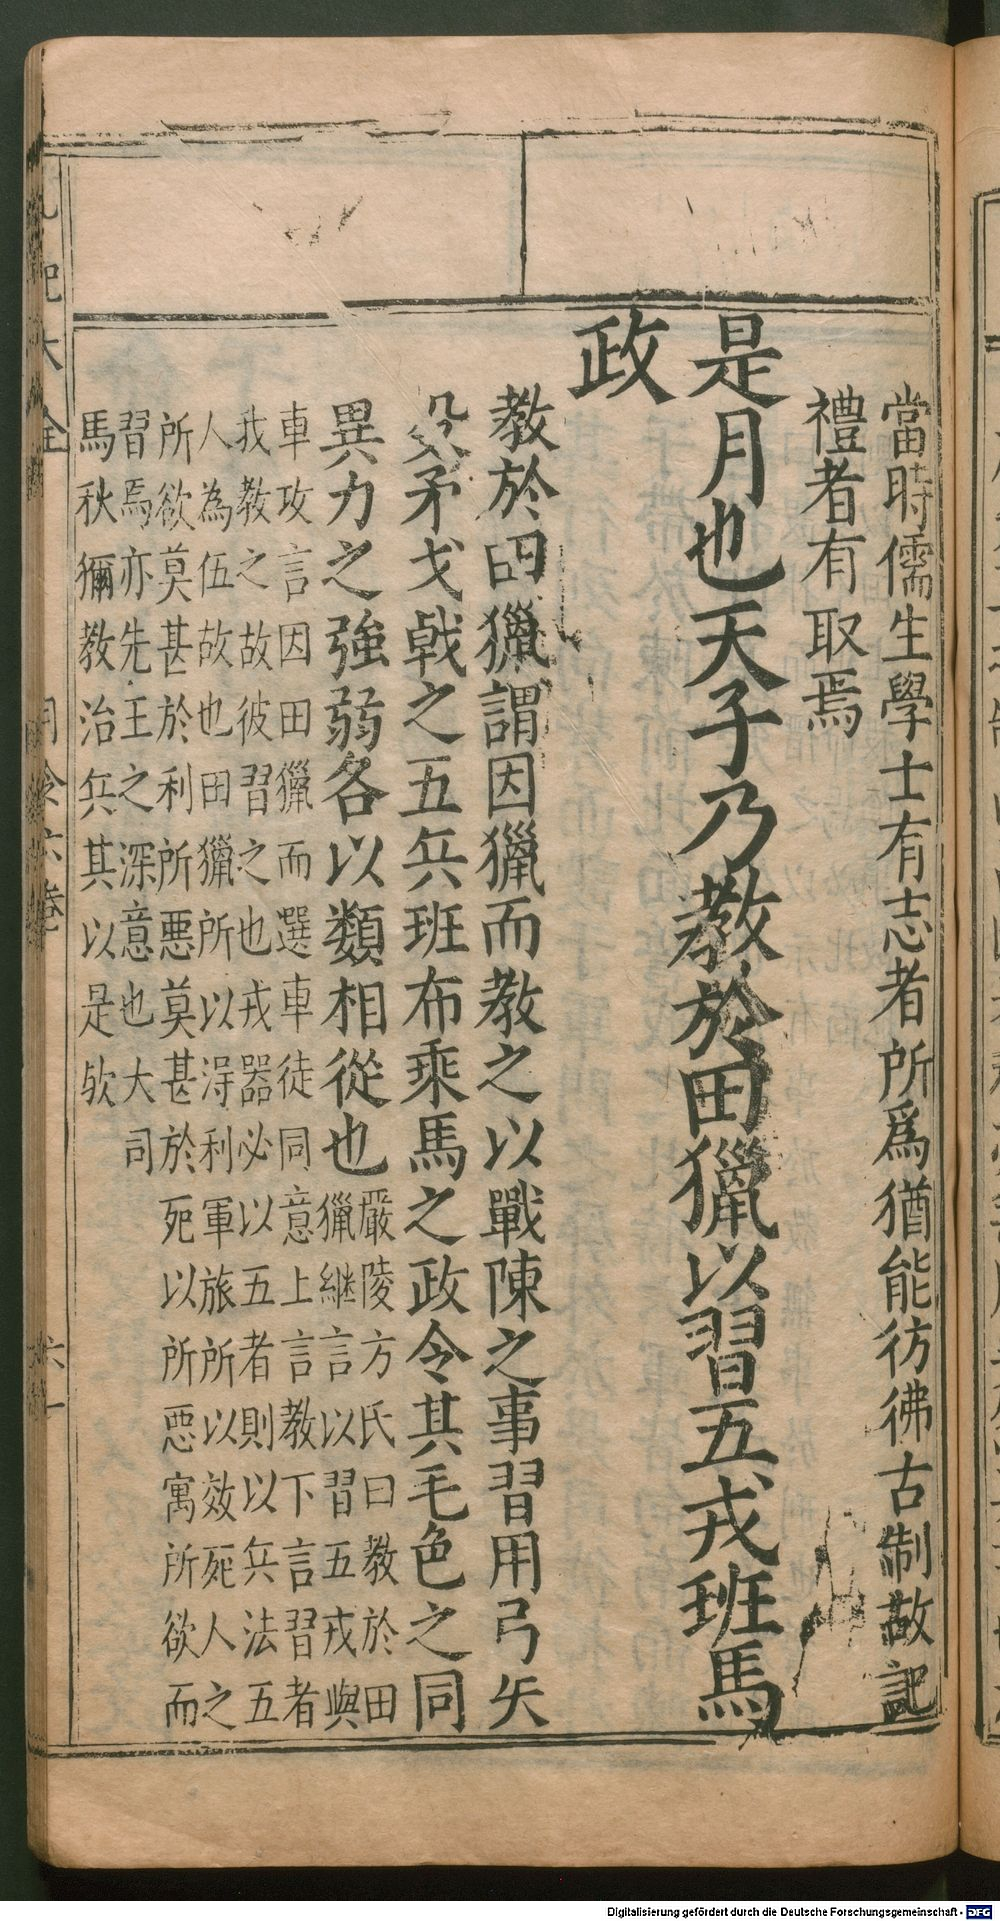 當時儒生學士有志者所爲猶能彷彿古制故記
禮者有取焉
是月也天子乃教於田獵以習五戎班馬
政
教於田獵謂因獵而教之以戰陳之事習用弓矢
殳矛戈戟之五兵班布乘馬之政令其毛色之同
異力之強弱各以類相從也
嚴陵方氏曰教於田
獵繼言以習五戎與
車攻言因田獵而選車徒同意上言教下言習者
我教之故彼習之也戎器必以五者則以兵法五
人為伍故也田獵所以淂利軍旅所以效死人之
所欲莫甚於利所惡莫甚於死以所惡寓所欲而
習焉亦先王之深意也大司
馬秋獮教治兵其以是欤
記大全
月令六卷
Digitalisierung gefördert durch die Deutsche Forschungsgemeinschaft - DFG